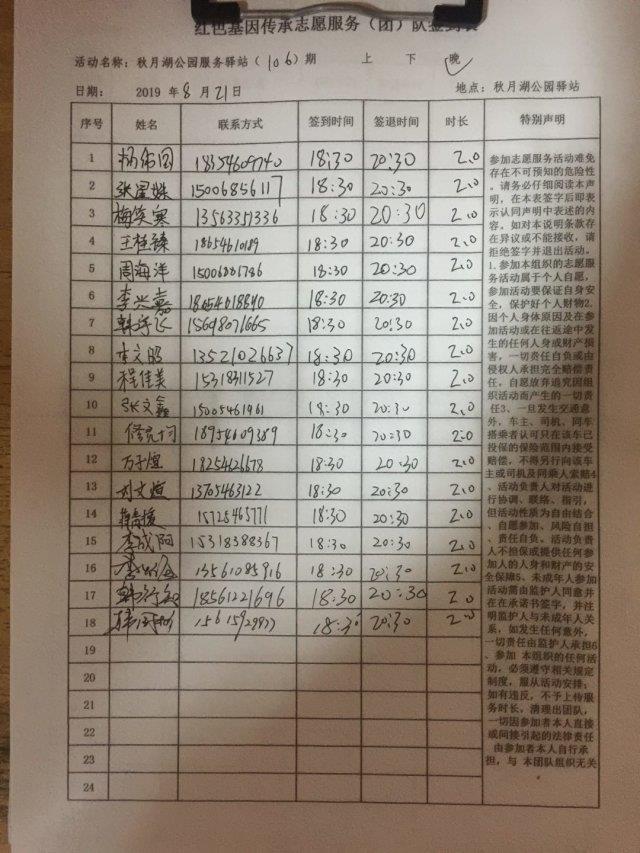 红色基因传承志愿服务（团）队签到表
活动名称：秋月湖公园服务驿站（106）期 上 下 晚
日期： 2019 年 8 月 21 日 地点：秋月湖公园驿站
序号 姓名 联系方式 签到时间 签退时间 时长 特别声明
1 18354609740 18:30 20:30 2.0
2 15006856117 18:30 20:30 2.0
3 梅笑寒 13563351336 18:30 20:30 2.0
4 王桂臻 18654610189 18:30 20:30 2.0
5 周海洋 18:30 20:30 2.0
6 李兴嘉 18:30 20:30 2.0
7 15698071665 18:30 20:30 2.0
8 李文昭 13521026637 18:30 20:30 2.0
9 程佳美 15318311527 18:30 20:30 2.0
10 张文鑫 15005461961 18:30 20:30 2.0
11 18954609389 18:30 20:30 2.0
12 万子煜 18254426678 18:30 20:30 2.0
13 刘文煊 13705463122 18:30 20:30 2.0
14 15725465771 18:30 20:30 2.0
15 李成阿 15318388367 18:30 20:30 2.0
16 13561085916 18:30 20:30 2.0
17 18561221696 18:30 20:30 2.0
18 18:30 20:30 2.0
19
20
21
22
23
24
参加志愿服务活动难免
存在不可预知的危险性
。请务必仔细阅读本声
明，在本表签字后即表
示认同声明中表述的内
容。如对本说明条款存
在异议或不能接收，请
拒绝签字并退出活动。
1.参加本组织的志愿服
务活动属于个人自愿，
参加活动要保证自身安
全，保护好个人财物2.
因个人身体原因及在参
加活动或在往返途中发
生的任何人身或财产损
害，一切责任自负或由
侵权人承担完全赔偿责
任，自愿放弃追究因组
织活动而产生的一切责
任3、一旦发生交通意
外，车主、司机、同车
搭乘者认可只在该车已
投保的保险范围内接受
赔偿，不得另行向该车
主或司机及同乘人索赔4
、活动负责人对活动进
行协调、联络、指引，
但活动性质为自由结合
、自愿参加、风险自担
、责任自负。活动负责
人不担保或提供任何参
加人的人身和财产的安
全保障5、未成年人参加
活动需由监护人同意并
在在承诺书签字，并注
明监护人与未成年人关
系，如发生任何意外，
一切责任由监护人承担6
、参加 本组织的任何活
动，必须遵守相关规定
制度，服从活动安排；
如有违反，不予上传服
务时长，清理出团队，
一切因参加者本人直接
或间接引起的法律责任
由参加者本人自行承
担，与 本团队组织无关